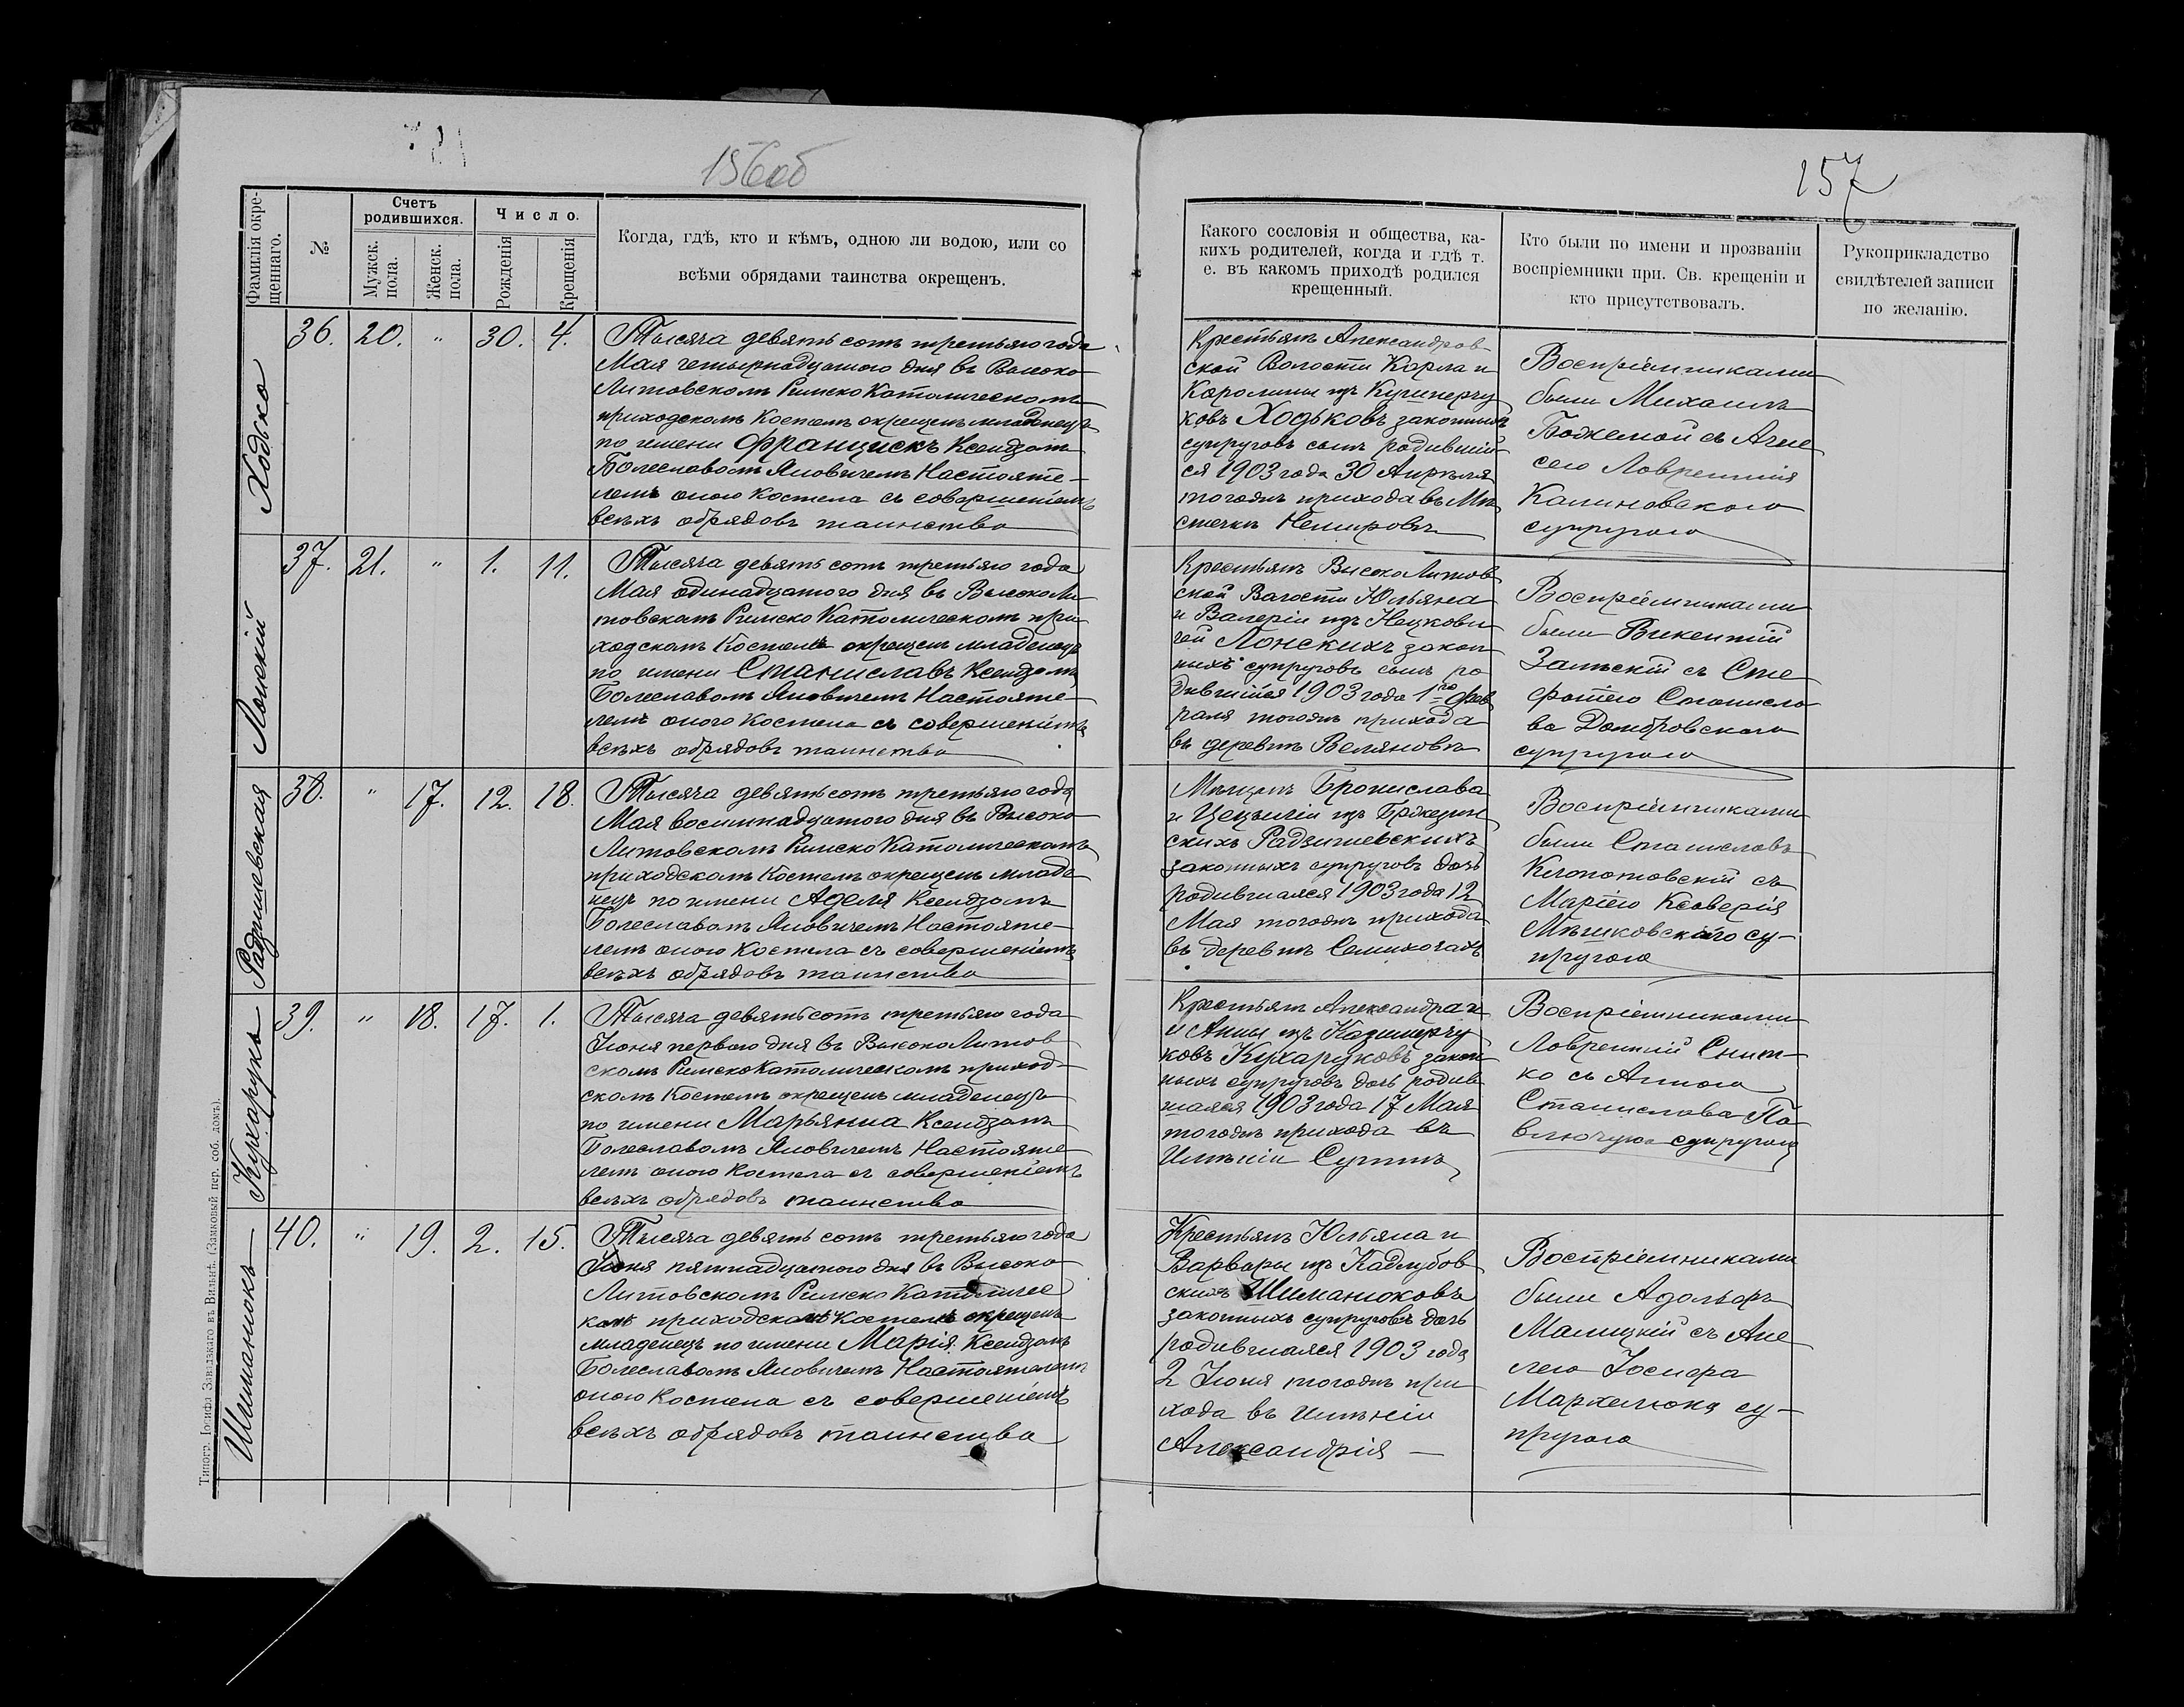 156об
157
Фамилія окре-
щеннаго.
№
Счетъ
родившихся.
Мужск.
пола.
Женск.
пола.
Число.
Рожденія
Крещенія
Когда, гдѣ, кто и кѣмъ, одною ли водою, или со
всѣми обрядами таинства окрещенъ.
Какого сословія и общества, ка-
кихъ родителей, когда и гдѣ т.
е. въ какомъ приходѣ родился
крещенный.
Кто были по имени и прозваніи
воспріемники при. Св. крещеніи и
кто присутствовалъ.
Рукоприкладство
свидѣтелей записи
по желанію.
Ходько
36. 20. " 30. 4.
Тысяча девятьсотъ третьяго года
Мая четырнадцатого дня въ Высоко
Литовскомъ Римско Католическомъ
приходскомъ Костелѣ окрещенъ младенецъ
по имени Францискъ Ксендзомъ
Болеславомъ Яновичемъ Настояте-
лемъ оного Костела съ совершеніемъ
всѣхъ обрядовъ таинства
Крестьянъ Александров
ской Волости Карла и
Каролины изъ
ковъ Ходьковъ законныхъ
супруговъ сынъ родившій
ся 1903 года 30 Апрѣля
тогожъ прихода въ Мѣ
стечкѣ Немировѣ
Воспріемниками
были Михаилъ
съ Агне
сою Лаврентія
Калиновского
супругою
Лонскій
37. 21. " 1. 11.
Тысяча девятьсотъ третьяго года
Мая одинадцатого дня въ Высоколи
товскомъ Римско Католическомъ при
ходскомъ Костелѣ окрещенъ младенецъ
по имени Станиславъ Ксендзомъ
Болеславомъ Яновичемъ Настояте-
лемъ оного Костела съ совершеніемъ
всѣхъ обрядовъ таинства
Крестьянъ ВысокоЛитов
ской Валости Юльяна
и Валеріи изъ Нецкови
чей Лонскихъ закон
ныхъ супруговъ сынъ ро
дившійся 1903 года 1го Фев
раля тогожъ прихода
въ деревнѣ Веляновѣ
Воспріемниками
были Викентій
Залѣскій съ Сте
фаніею Станисла
ва Домбровского
супругою
Радзишевская
38. " 17. 12. 18.
Тысяча девятьсотъ третьяго года
Мая восимнадцатого дня въ Высоко
Литовскомъ Римско Католическомъ
приходскомъ Костелѣ окрещенъ младе
нецъ по имени Аделя Ксендзомъ
Болеславомъ Яновичемъ Настояте-
лемъ оного Костела съ совершеніемъ
всѣхъ обрядовъ таинства
Мѣщанъ Бронислава
и Цецыліи изъ Бржезин
скихъ Радзишевскихъ
законныхъ супруговъ дочь
родившаяся 1903 года 12
Мая тогожъ прихода
въ деревнѣ Семихочахъ
Воспріемниками
были Станиславъ
Клопотовскій съ
Маріею Ксаверія
Мѣшковскаго су-
пругою
Кухарукъ
39. " 18. 17. 1.
Тысяча девятьсотъ третьяго года
Іюня первого дня въ ВысокоЛитов
скомъ РимскоКатолическомъ приход-
скомъ Костелѣ окрещенъ младенецъ
по имени Марьянна Ксендзомъ
Болеславомъ Яновичемъ Настояте-
лемъ оного Костела съ совершеніемъ
всѣхъ обрядовъ таинства
Крестьянъ Александра и
и Анны изъ Казимерчу
ковъ Кухаруковъ закон
ныхъ супруговъ дочь родив
шаяся 1903 года 17 Мая
тогожъ прихода въ
Имѣніи
Воспріемниками
Лаврентій Снит-
ко съ Анною
Станислава Па
влючука супругою
Шиманюкъ
40. " 19. 2. 15.
Тысяча девятьсотъ третьяго года
Іюня пятнадцатого дня въ Высоко
Литовскомъ Римско Католичес
комъ приходскомъ Костелѣ окрещенъ
младенецъ по имени Марія Ксендзомъ
Болеславомъ Яновичемъ Настоятелемъ
оного Костела съ совершеніемъ
всѣхъ обрядовъ таинства
Крестьянъ Юльяна и
Варвары изъ Кадлубов
скихъ Шиманюковъ
законныхъ супруговъ дочь
родившаяся 1903 года
2 Іюня тогожъ при
хода въ имѣніи
Александрія —
Воспріемниками
были Адольфъ
Малицкій съ Ане
лею Іосифа
Мархелюка су-
пругою
Типогр. Іосифа Завадзкаго въ Вильнѣ. (Замковый пер. соб. домъ).